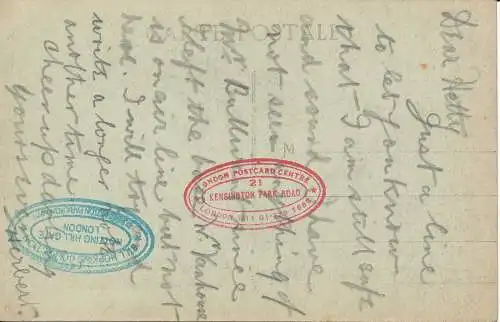 CARTE POSTALE
Dear Hetty
Just a line
to let you know
that I am still safe
and sound. I have
not seen anything of
Mr. Bullen since
I left the base.
is on air line but not
here. I will try and
write a longer
another time
cheer up
Yours
LONDON POSTCARD CENTRE
21
KENSINGTON PARK ROAD
LONDON W11
NOTTING HILL GATE
LONDON
M